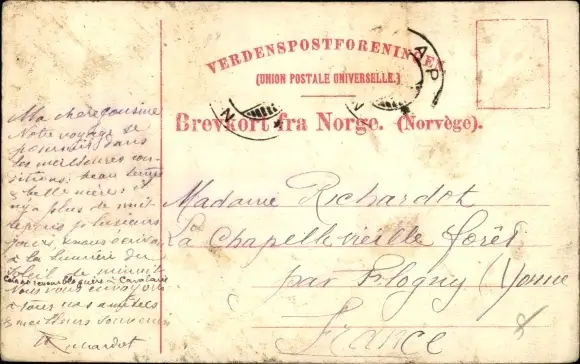 VERDENSPOSTFORENINGEN
(UNION POSTALE UNIVERSELLE.)
Brevkort fra Norge. (Norvège).
Ma chère cousine
Notre voyage se
poursuit dans
les meilleures con-
ditions; beau temps
belle mer
n'y a plus de nuit
depuis plusieurs
jours,
à la lumière du
soleil de minuit
Nous vous envoyons
à tous nos amitiés
& meilleurs souvenirs
Richardot
Madame Richardot
La Chapelle vieille forêt
par Flogny (Yonne
France